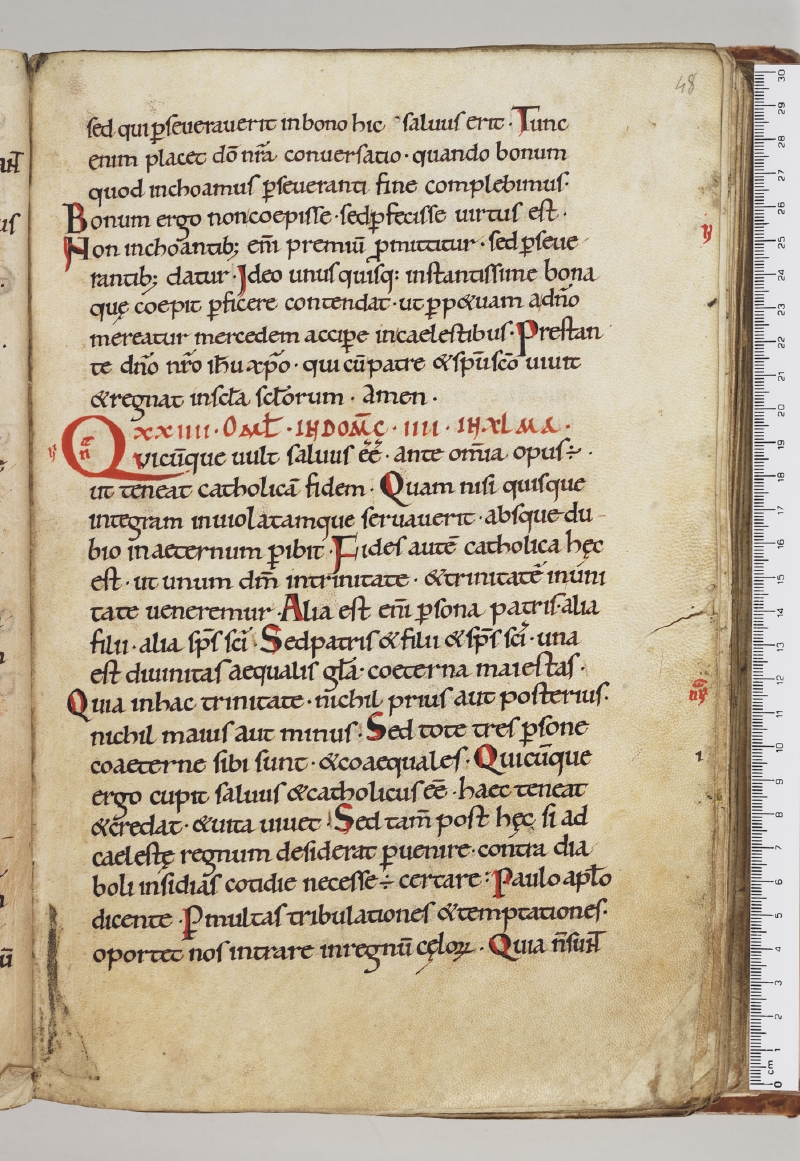 48
sed qui p̱seuerauerit in bono hic saluus erit · Tunc
enim placet dō nr̄a conuersatio · quando bonum
quod inchoamus p̱seueranti fine complebimus ·
Bonum ergo non coepisse · sed p̱fecisse uirtus est ·
Non inchoantib; em̄ premiū p̄mittitur · sed p̱seue
rantib; datur · Ideo unus quisq: instantissime bona
quę coepit p̱ficere contendat · ut p̱p&uam a dn̄o
mereatur mercedem accip̱e in caelestibus · Prestan
te dn̄o nr̄o ih̄u xp̄o · qui cū patre & sp̄u sc̄o uiuit
& regnat in scl̄a scl̄orum · Amen ·
XXIIII · OML̄ · IN DOM̄C · IIII · IN XLMA ·
Quicūque uult saluus ēē · ante om̄ia opus ÷ ·
ut teneat catholicā fidem · Quam nisi quisque
integram inuiolatamque seruauerit · absque du
bio in aeternum p̱ibit · Fides autē catholica hęc
est · ut unum dm̄ in trinitate · & trinitatē in uni
tate ueneremur · Alia est em̄ p̱sona patris · alia
filii · alia sp̄s sc̄i · Sed patris & filii & sp̄s sc̄i · una
est diuinitas aequalis gl̄a · coeterna maiestas ·
Quia in hac trinitate · nichil prius aut posterius ·
nichil maius aut minus · Sed tote tres p̱sone
coaeterne sibi sunt · & coaequales · Quicūque
ergo cupit saluus & catholicus ēē · haec teneat
& credat · & uita uiuet · Sed tam̄ post hęc si ad
caelestę regnum desiderat p̱uenire · contra dia
boli insidias cotidie necesse ÷ certare : Paulo apl̄o
dicente · P̱ multas tribulationes & temptationes ·
oportet nos intrare in regnū cęloꝝ · Quia n̄ sunt